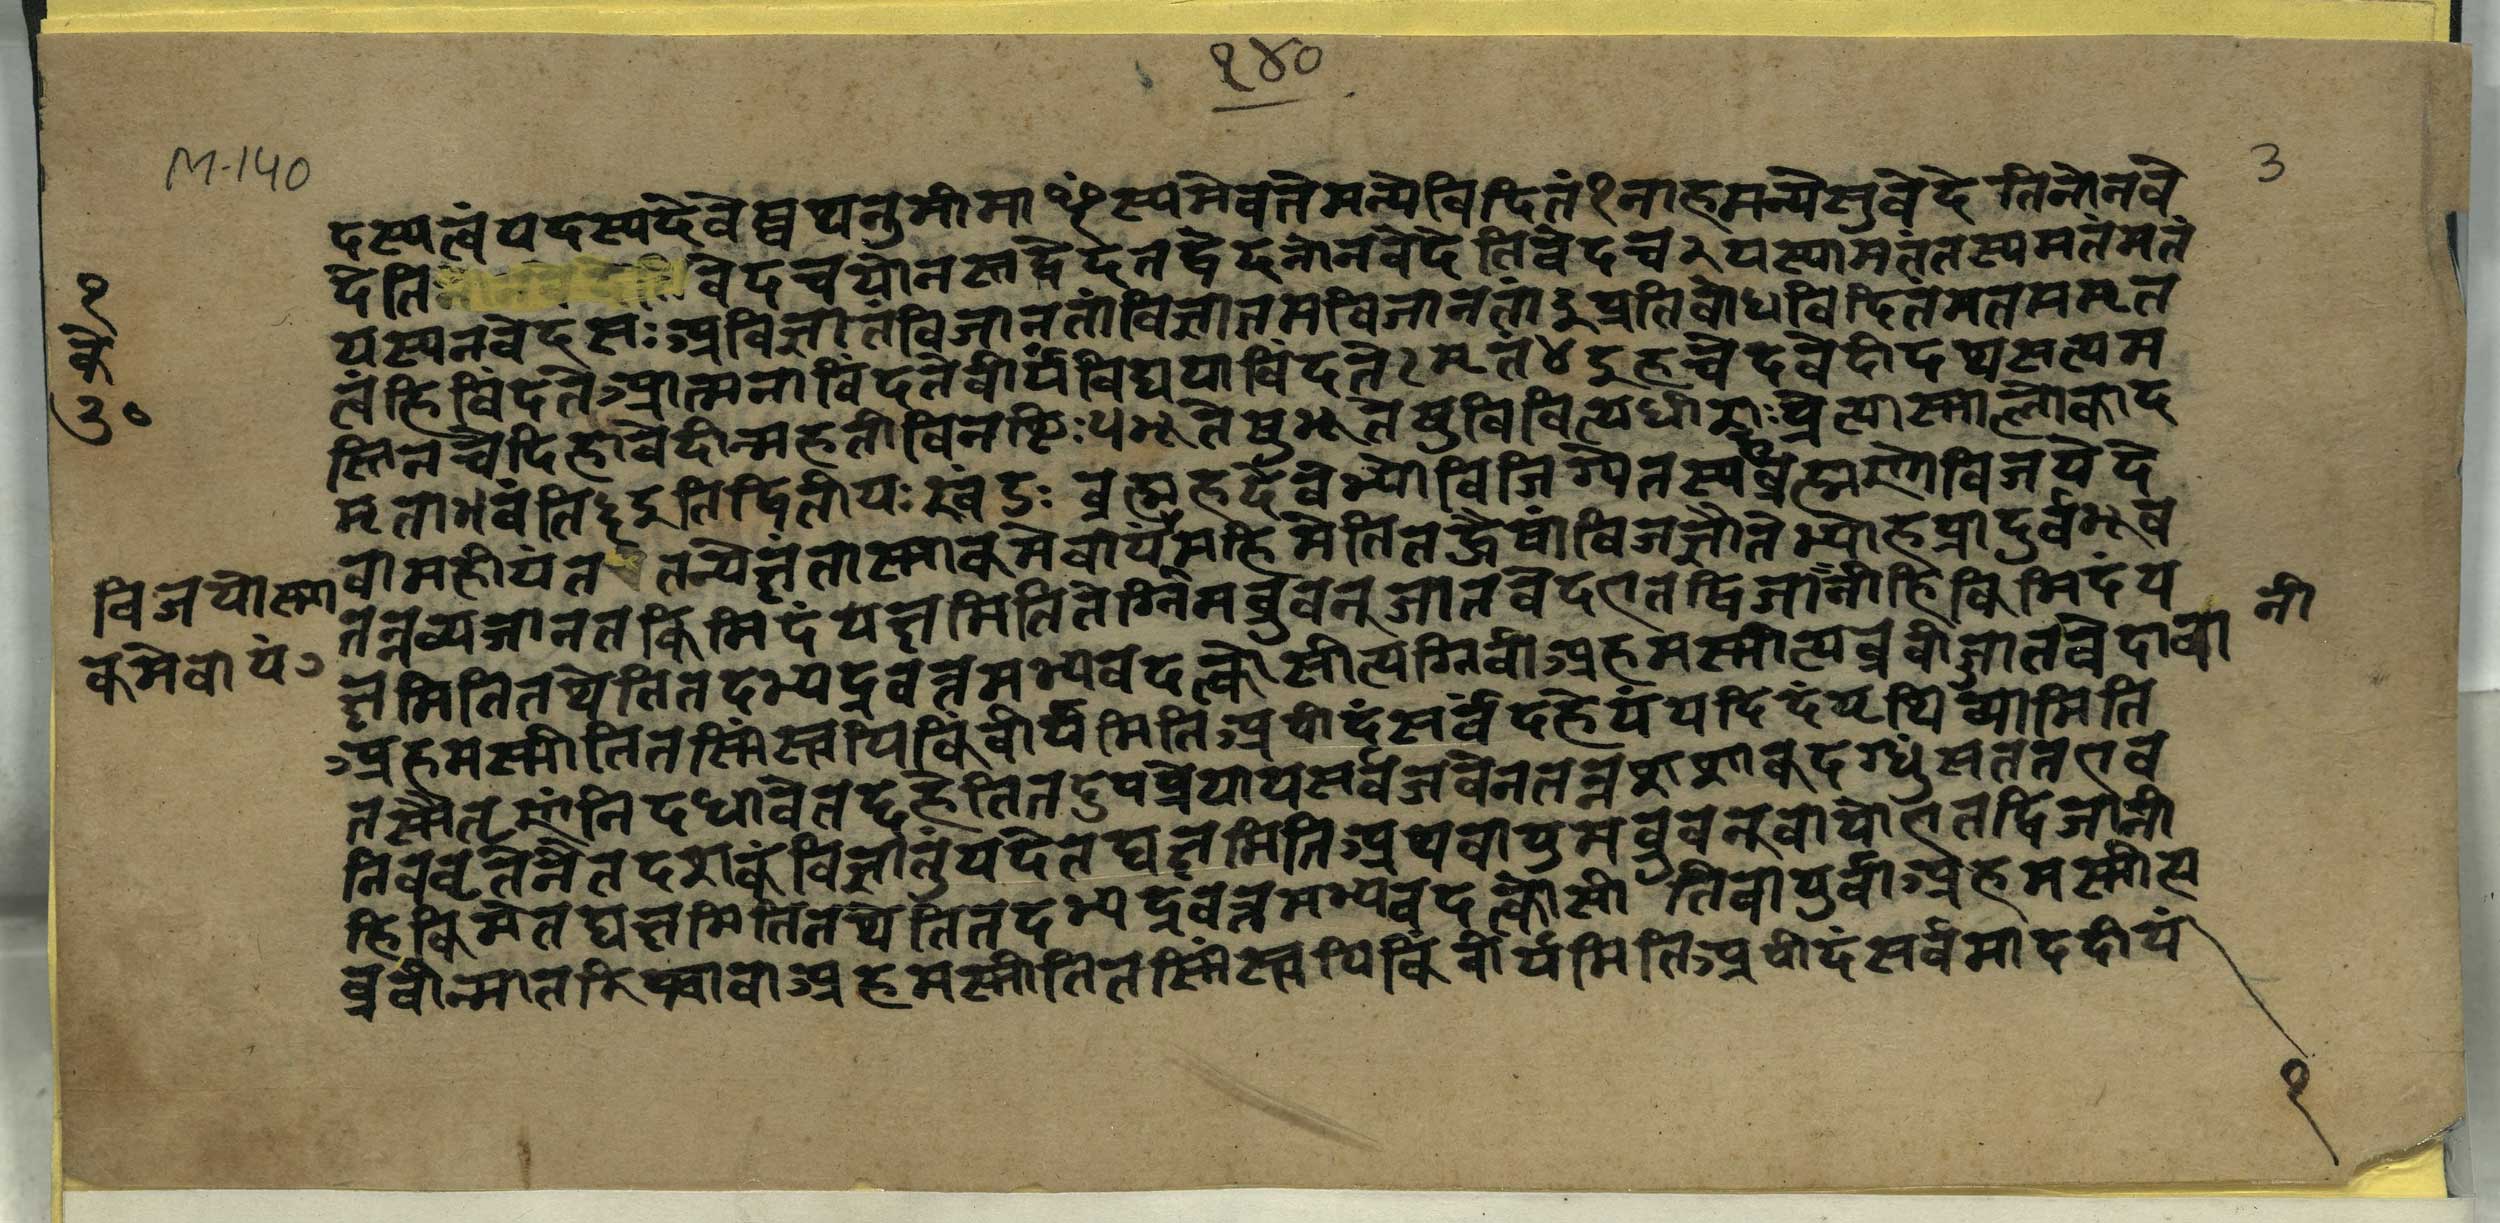 १४०
M-140
3
दस्यत्वंयदस्यदेवेष्वथनुमीमाꣳस्यमेवतेमन्येविदितं१नाहमन्येसुवेदेतिनोनवे
देतिवेदचयोनस्तद्वेदतद्वेदनोनवेदेतिवेदच२यस्यामतंतस्यमतंमतं
यस्यनवेदसःअविज्ञातंविजानतांविज्ञातमविजानतां३प्रतिबोधविदितंमतममृत
त्वंहिविंदतेआत्मनाविंदतेवीर्यंविद्ययाविंदतेऽमृतं४इहचेदवेदीदथसत्यम
स्तिनचेदिहावेदीन्महतीविनष्टिः५भूतेषुभूतेषुविचित्यधीराःप्रेत्यास्माल्लोकाद
मृताभवंति६इतिद्वितीयःखंडः ब्रह्महदेवेभ्योविजिग्येतस्यहब्रह्मणोविजयेदे
वामहीयंत तऐक्षंतास्माकमेवायंमहिमेतितद्धैषांविजज्ञौतेभ्योहप्रादुर्बभूव
तन्नव्यजानतकिमिदंयक्षमितितेग्निमब्रुवन्जातवेदएतद्विजानीहिकिमिदंय
क्षमितितथेतितदभ्यद्रवत्तमभ्यवदत्कोसीत्यग्निर्वाअहमस्मीत्यब्रवीज्जातवेदावा
अहमस्मीतितस्मिंस्त्वयिकिंवीर्यमितिअपीदंसर्वंदहेयंयदिदंपृथिव्यामिति
तस्मैतृणंनिदधावेतद्दहेतितदुपप्रेयायसर्वजवेनतन्नशशाकदग्धुंसततएव
निववृतेनैतदशकंविज्ञातुंयदेतद्यक्षमितिअथवायुमब्रुवन्वायोएतद्विजानी
हिकिमेतद्यक्षमितितथेतितदभ्यद्रवत्तमभ्यवदत्कोसी तिवायुर्वाअहमस्मीत्य
ब्रवीन्मातरिश्वावाअहमस्मीतितस्मिंस्त्वयिकिंवीर्यमितिअपीदंसर्वमाददीयं
१
के
उ०
विजयोस्मा
कमेवायं
नी
१